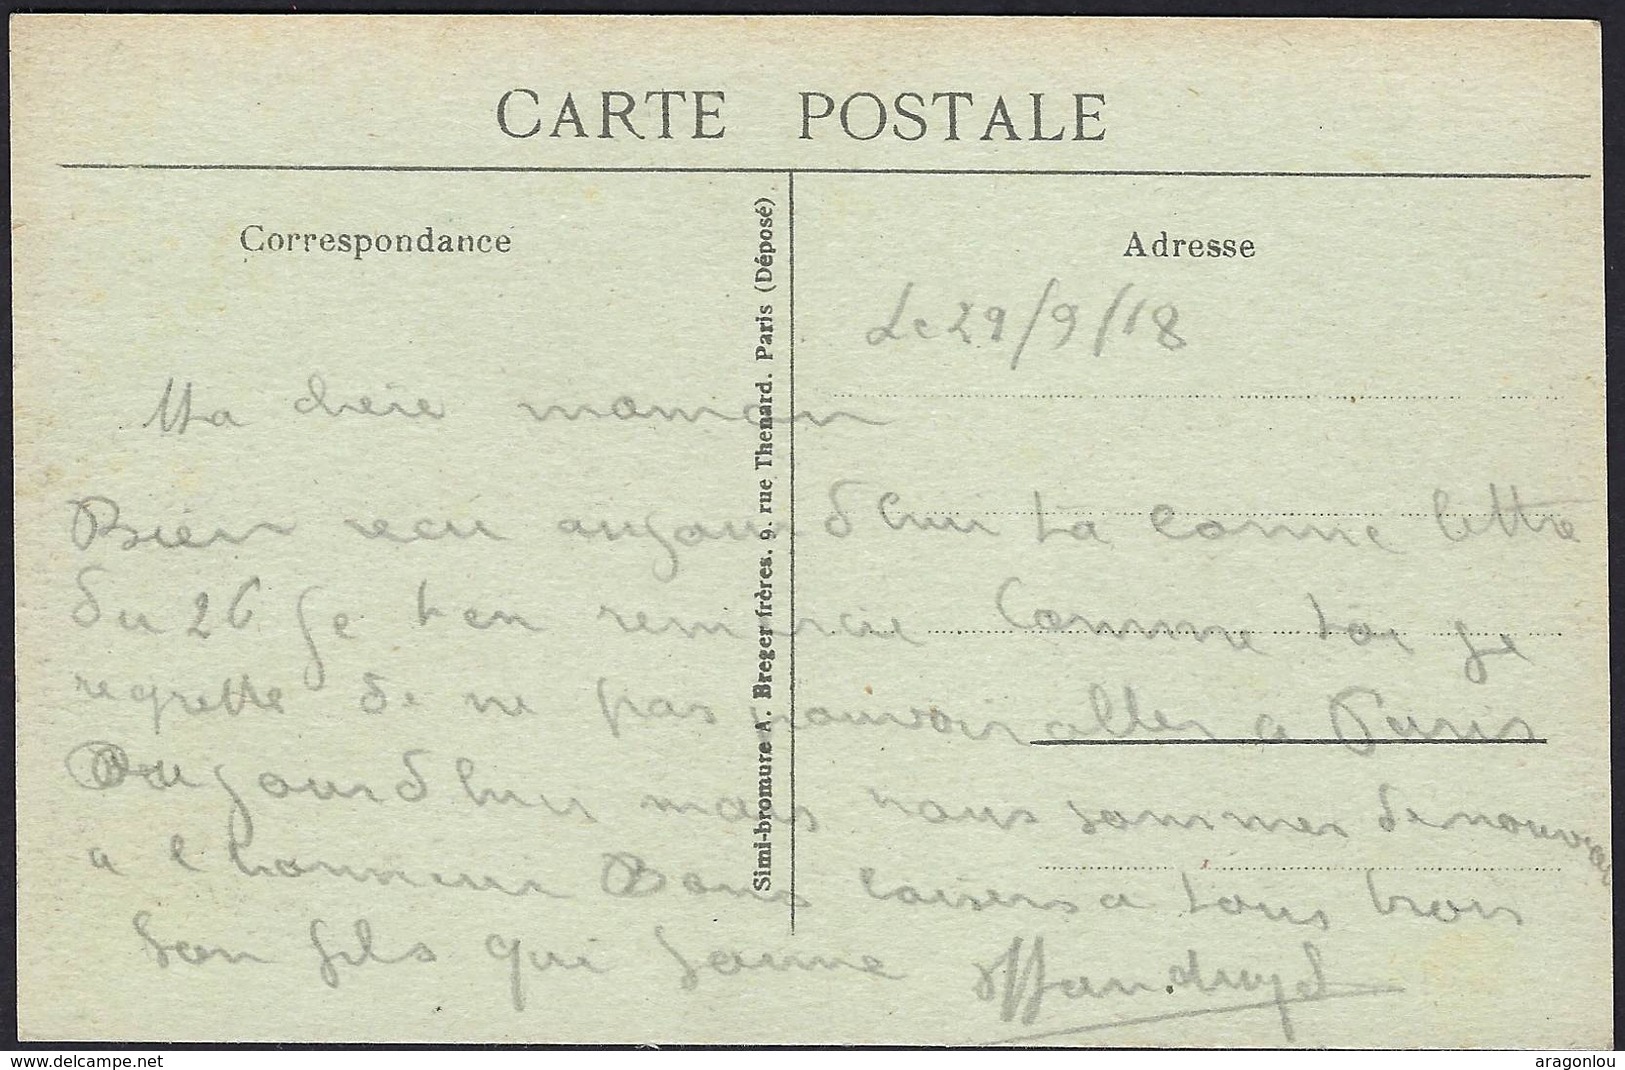 CARTE POSTALE
Correspondance
Adresse
Simi-bromure A. Breger frères. 9. rue Thenard. Paris (Déposé)
Le 29/9/18
Ma chere maman
Bien recu aujourd hui ta bonne lettre
du 26 Je t en remercie Comme toi je
regrette de ne pas pouvoir aller a Paris
Aujourd hui mais nous sommes de nouveau
a l honneur Bons baisers a tous trois
Ton fils qui t aime
delcampe.net
aragonlou